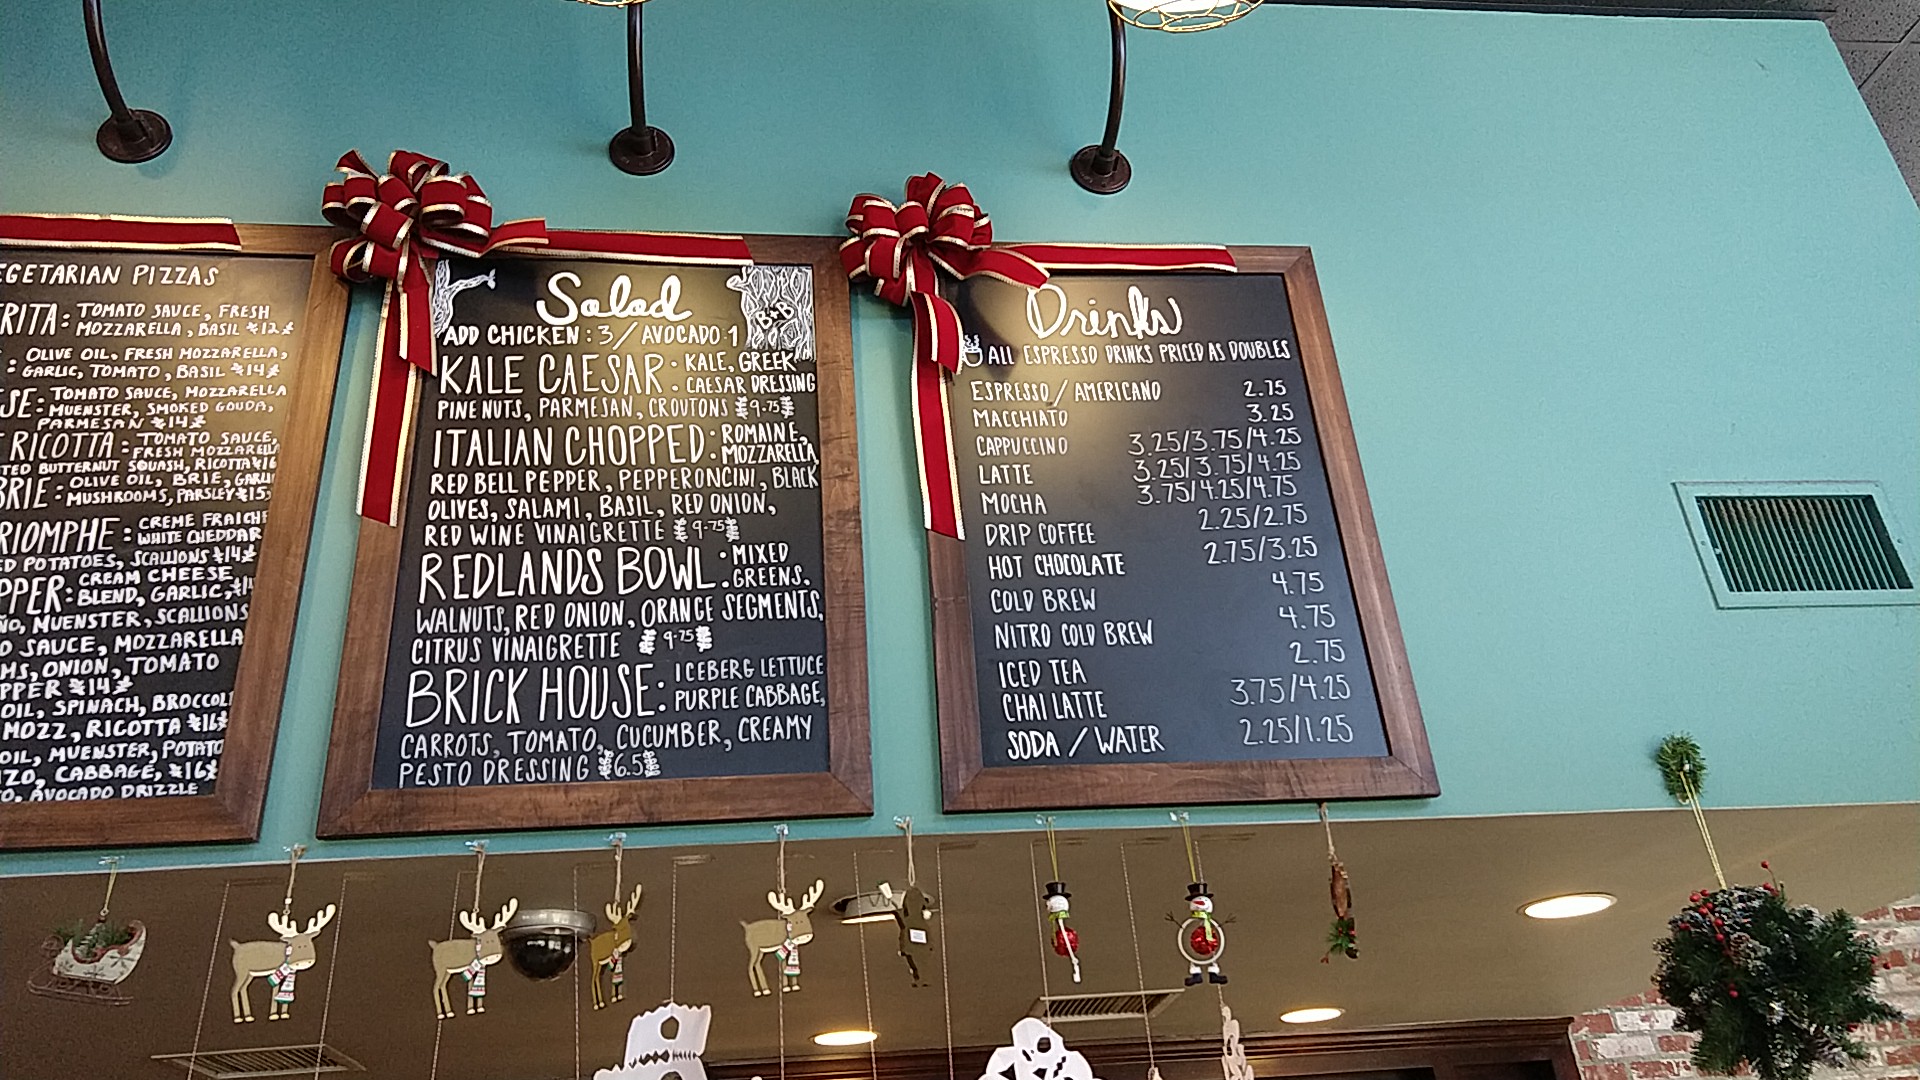 VEGETARIAN PIZZAS
TOMATO SAUCE, FRESH
MOZZARELLA, BASIL $12
: OLIVE OIL, FRESH MOZZARELLA,
GARLIC, TOMATO, BASIL $14
TOMATO SAUCE, MOZZARELLA
MUENSTER, SMOKED GOUDA,
PARMESAN $14
RICOTTA: TOMATO SAUCE,
FRESH MOZZARELLA
BUTTERNUT SQUASH, RICOTTA $16
BRIE: OLIVE OIL, BRIE, GARLIC
MUSHROOMS, PARSLEY $15
CREME FRAICHE
WHITE CHEDDAR
POTATOES, SCALLIONS $14
CREAM CHEESE
BLEND, GARLIC,
MUENSTER, SCALLIONS
SAUCE, MOZZARELLA
ONION, TOMATO
$14
OIL, SPINACH, BROCCOLI
MOZZ, RICOTTA $16
OIL, MUENSTER, POTATO
CABBAGE, $16
AVOCADO DRIZZLE
Salad
B+B
ADD CHICKEN: 3 / AVOCADO 1
KALE CAESAR: KALE, GREEK
CAESAR DRESSING
PINE NUTS, PARMESAN, CROUTONS 9.75
ITALIAN CHOPPED: ROMAINE,
MOZZARELLA,
RED BELL PEPPER, PEPPERONCINI, BLACK
OLIVES, SALAMI, BASIL, RED ONION,
RED WINE VINAIGRETTE 9.75
REDLANDS BOWL: MIXED
GREENS.
WALNUTS, RED ONION, ORANGE SEGMENTS,
CITRUS VINAIGRETTE 9.75
BRICK HOUSE: ICEBERG LETTUCE
PURPLE CABBAGE,
CARROTS, TOMATO, CUCUMBER, CREAMY
PESTO DRESSING 6.5
Drinks
ALL ESPRESSO DRINKS PRICED AS DOUBLES
ESPRESSO / AMERICANO 2.75
MACCHIATO 3.25
CAPPUCCINO 3.25/3.75/4.25
LATTE 3.25/3.75/4.25
MOCHA 3.75/4.25/4.75
DRIP COFFEE 2.25/2.75
HOT CHOCOLATE 2.75/3.25
COLD BREW 4.75
NITRO COLD BREW 4.75
ICED TEA 2.75
CHAI LATTE 3.75/4.25
SODA / WATER 2.25/1.25